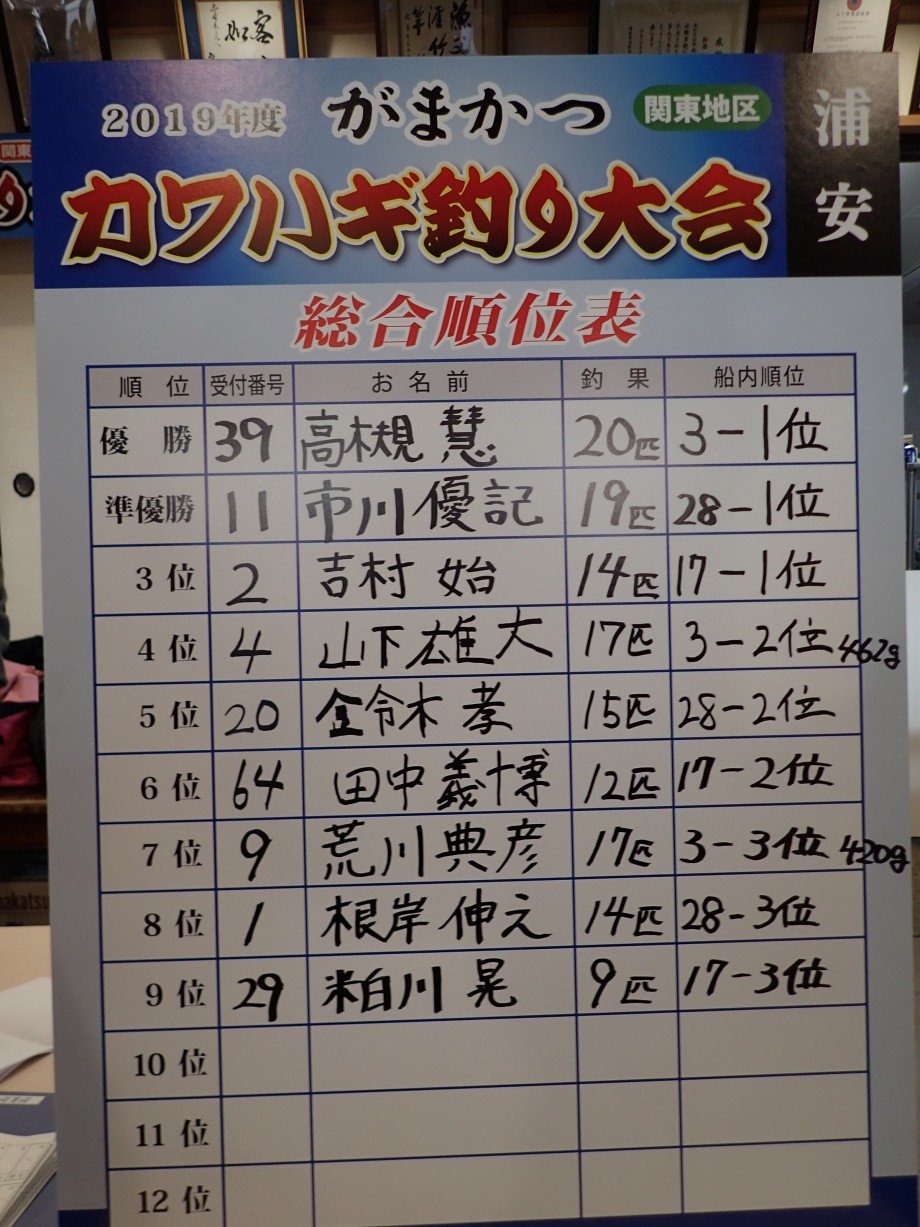 客
如
2019年度 がまかつ 関東地区
浦安
カワハギ釣り大会
関東
総合順位表
順位 受付番号 お名前 釣果 船内順位
優勝 39 高槻 慧 20匹 3-1位
準優勝 11 市川優記 19匹 28-1位
3位 2 吉村 始 14匹 17-1位
4位 4 山下雄大 17匹 3-2位 462g
5位 20 鈴木 孝 15匹 28-2位
6位 64 田中義博 12匹 17-2位
7位 9 荒川典彦 17匹 3-3位 420g
8位 1 根岸伸之 14匹 28-3位
9位 29 粕川 晃 9匹 17-3位
10位
11位
12位
akatsu